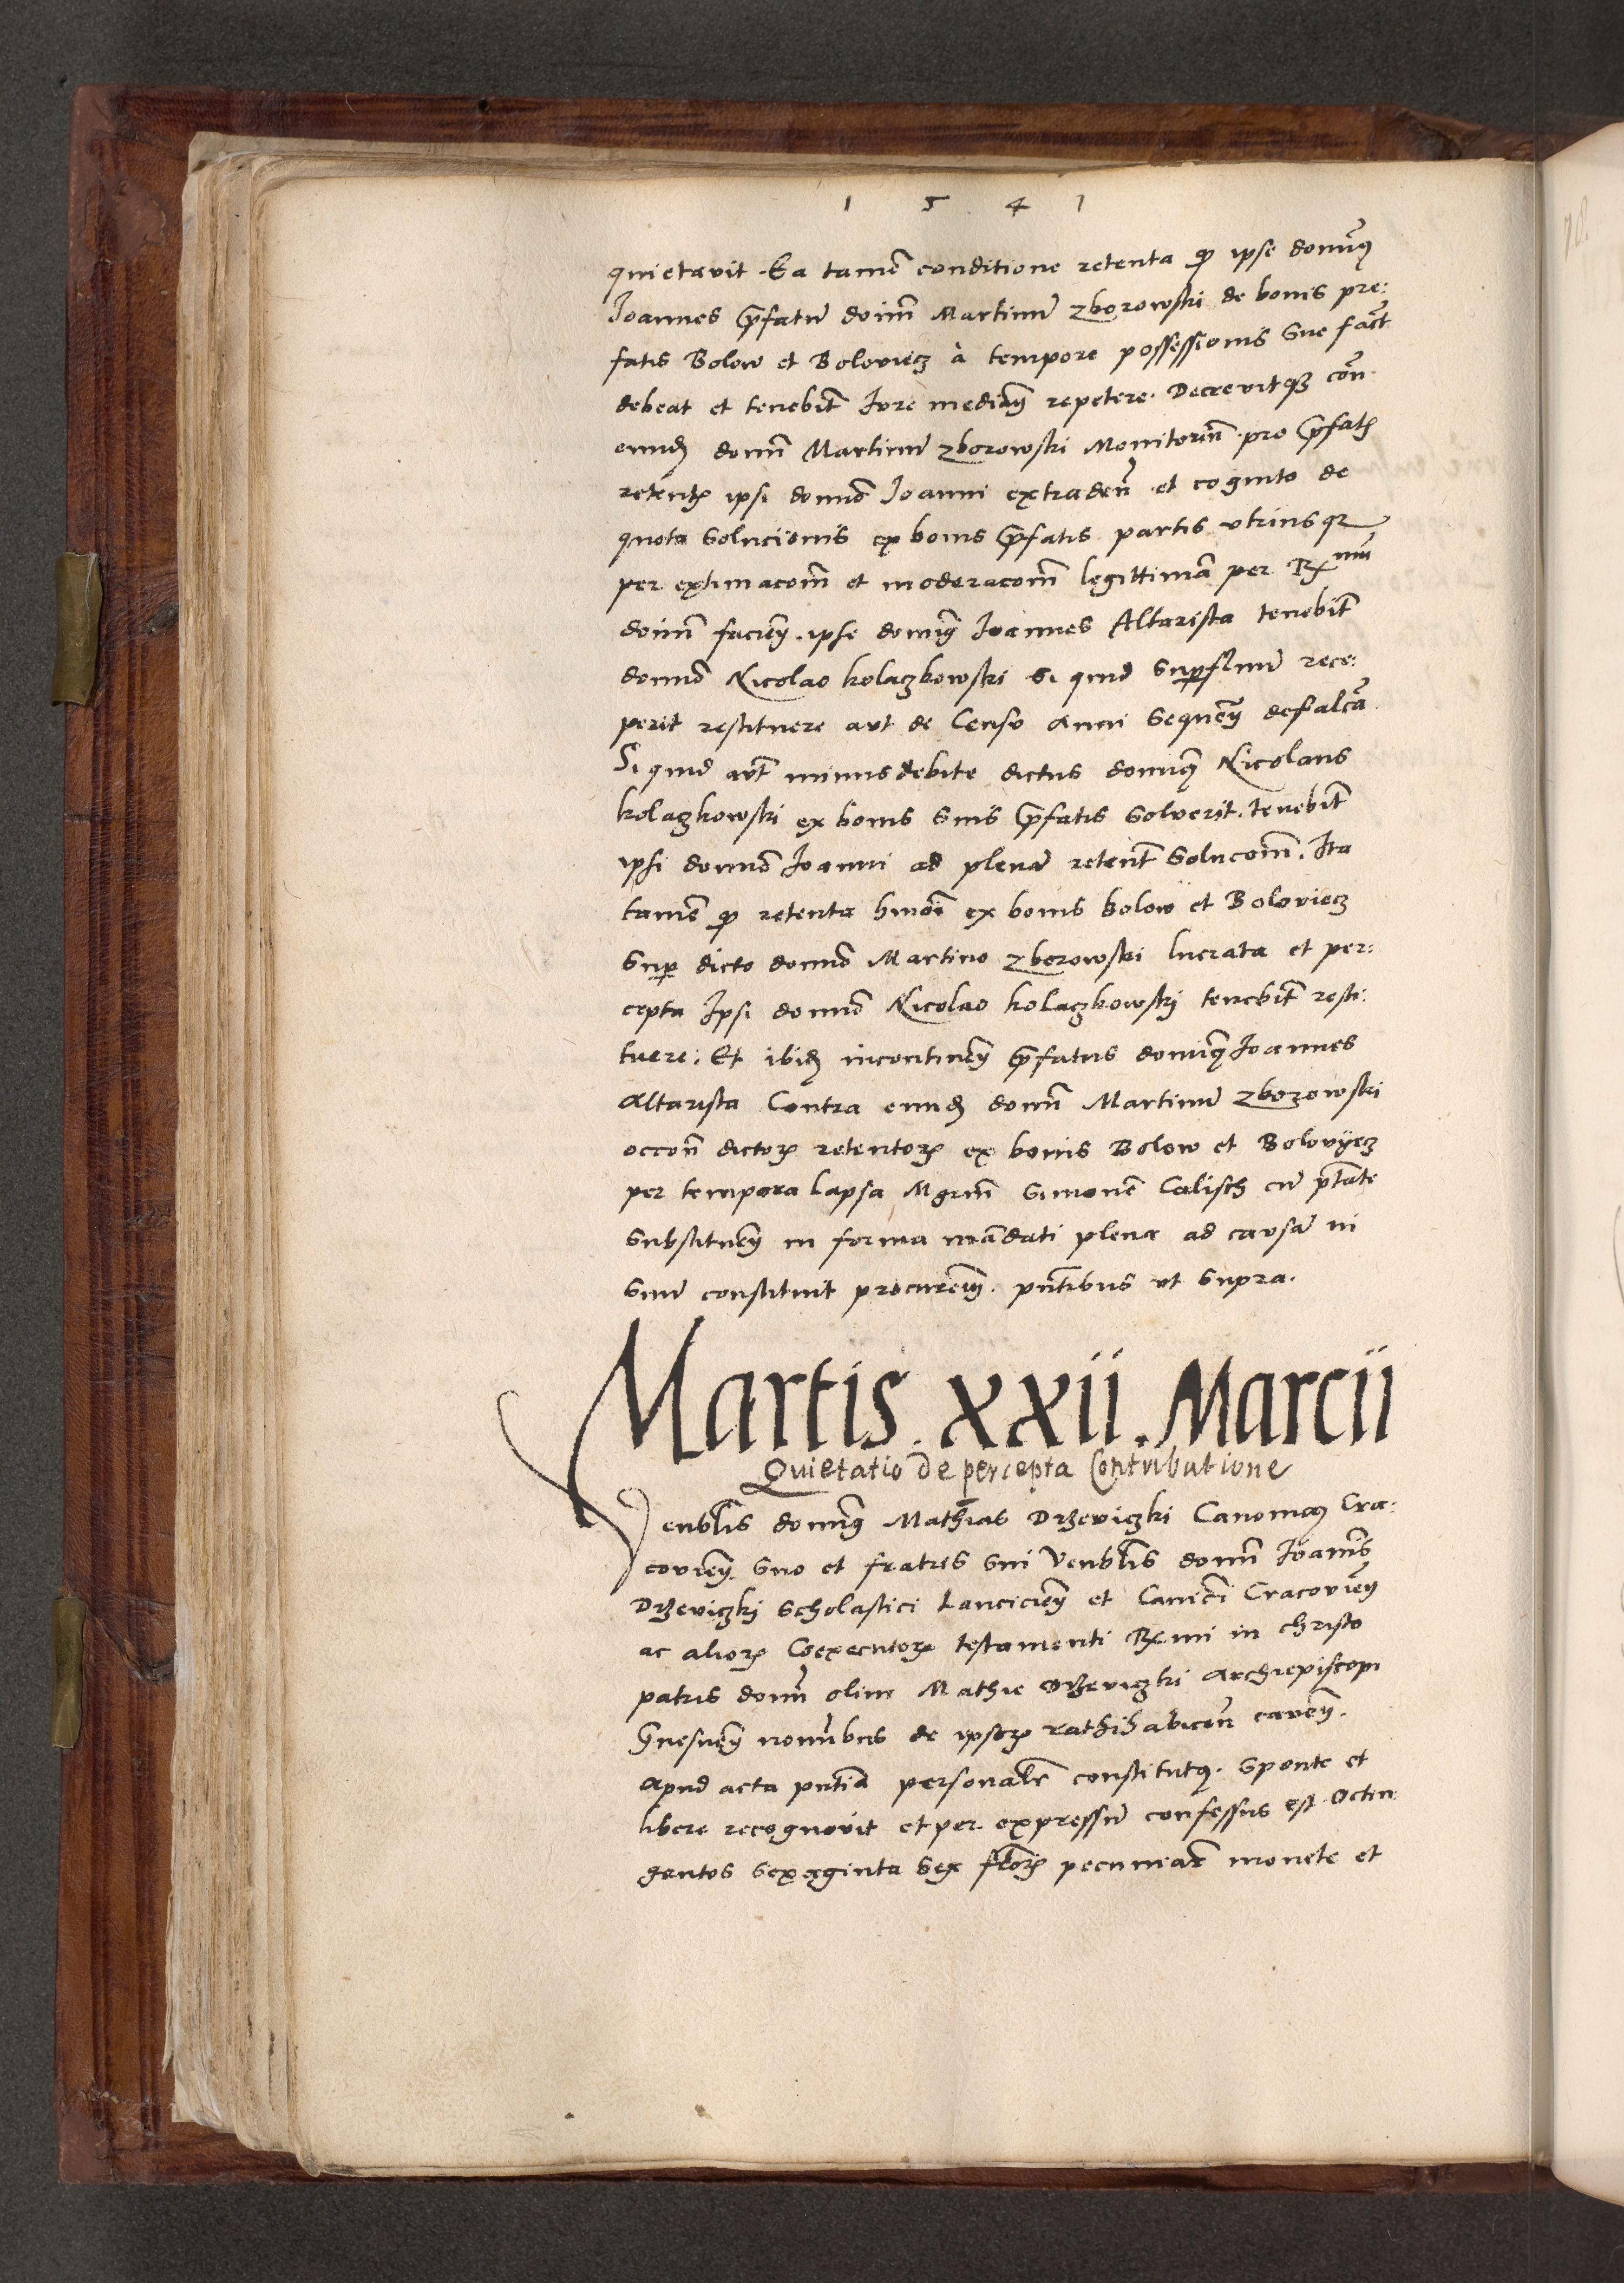 1 5 4 1
quietavit. Ea tamē conditione retenta qp ipse domūq
Joannes pfatū doim̄ Martinū Zborowski de bonis pre:
fatis Bolow et Boloviecz à tempore possessionis sue fact
debeat et tenebit̄ Jure median̄ repetere. Decrevitqз con̄
eundз dom̄ Martinū Zborowski Monitoriū pro pfatꝫ
retentꝫ ipsi domō Joanni extraden̄ et cognito de
quota solucionis ex bonis pfatis partis utriusqꝫ
per extimacom̄ et moderacom̄ legittimā per Rmū
doim̄ facien̄. ipse domiqꝫ Joannes Altarista tenebit̄
domō Nicolao kolaczkowski si quid supfluū rece:
perit restituere aut de Censo anni sequen̄ defalcā
Si quid aut̄ minus debite dictus domiqꝫ Nicolaus
kolaczkowski ex bonis suis pfatis solverit. tenebit̄
ipsi domō Joanni ad plenā retent̄ solucom̄. Ita
tamē qp retenta hmōi ex bonis Bolow et Boloviecz
sup dicto domō Martino Zborowski lucrata et per:
cepta Ipsi domō Nicolao kolaczkowskj tenebit̄ resti:
tuere. Et ibidз incontinen̄ pfatus domiqꝫ Joannes
altarista Contra eundз dom̄ Martinū Zborowski
occon̄ dictoꝝ retentoꝝ ex bonis Bolow et Bolovÿecz
per tempora lapsa Mgrm̄ Simonē Calisch cū ptāte
substituen̄ in forma mādati plena ad causā in
suū constituit procurem̄. pn̄tibus ut supra.
Martis . xxii . Marcii
Quietatio de percepta Contributione
Venblis domiqꝫ Mathias Drzeviczki Canonicꝰ Cra:
covien̄ suo et fratris sui Venblis domī Joannis
Drzeviczkj Scholastici Lancicien̄ et Canīci Cracovien̄
ac alioꝝ Coexecutoꝝ testamenti Rmi in christo
patris domī olim Mathie Drzeviczki archiepiscopi
Gnesnen̄ nomībus de ipsoꝝ rathihabicōn̄ caven̄.
apud acta pn̄tia personalr̄ constitutꝰ. sponte et
libere recognovit et per expressū confessus est Octin:
gentos sexaginta sex florꝫ pecuniar̄ monete et